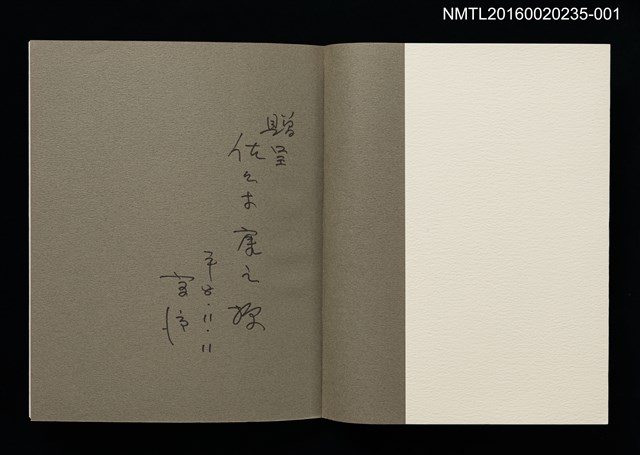 NMTL20160020235-001
贈呈
佐々木 康之 様
平8.11.11